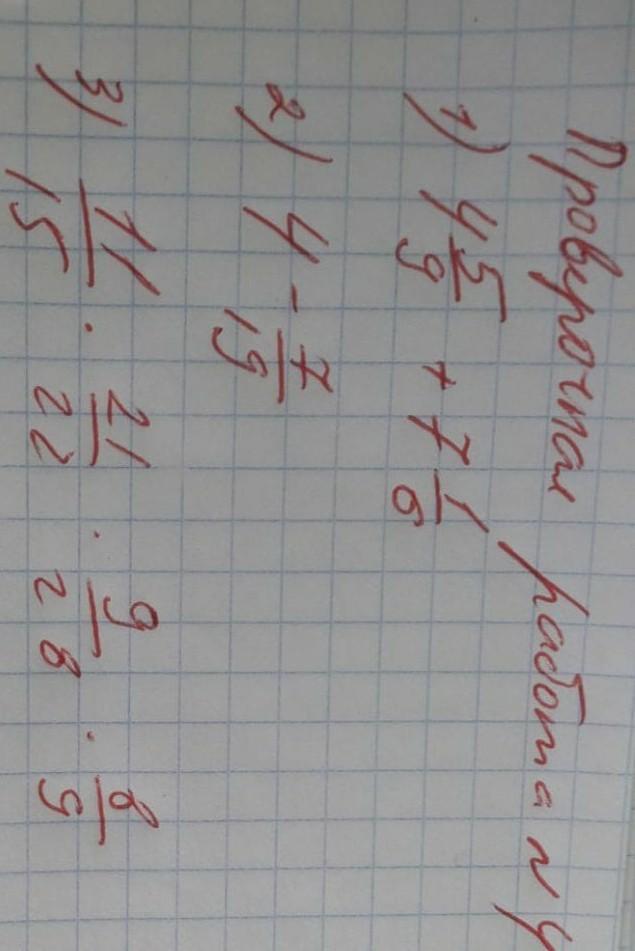 Проверочная работа N 4
1) 4 5/9 + 7 1/6
2) 4 - 7/19
3) 11/15 · 21/22 · 9/28 · 8/9